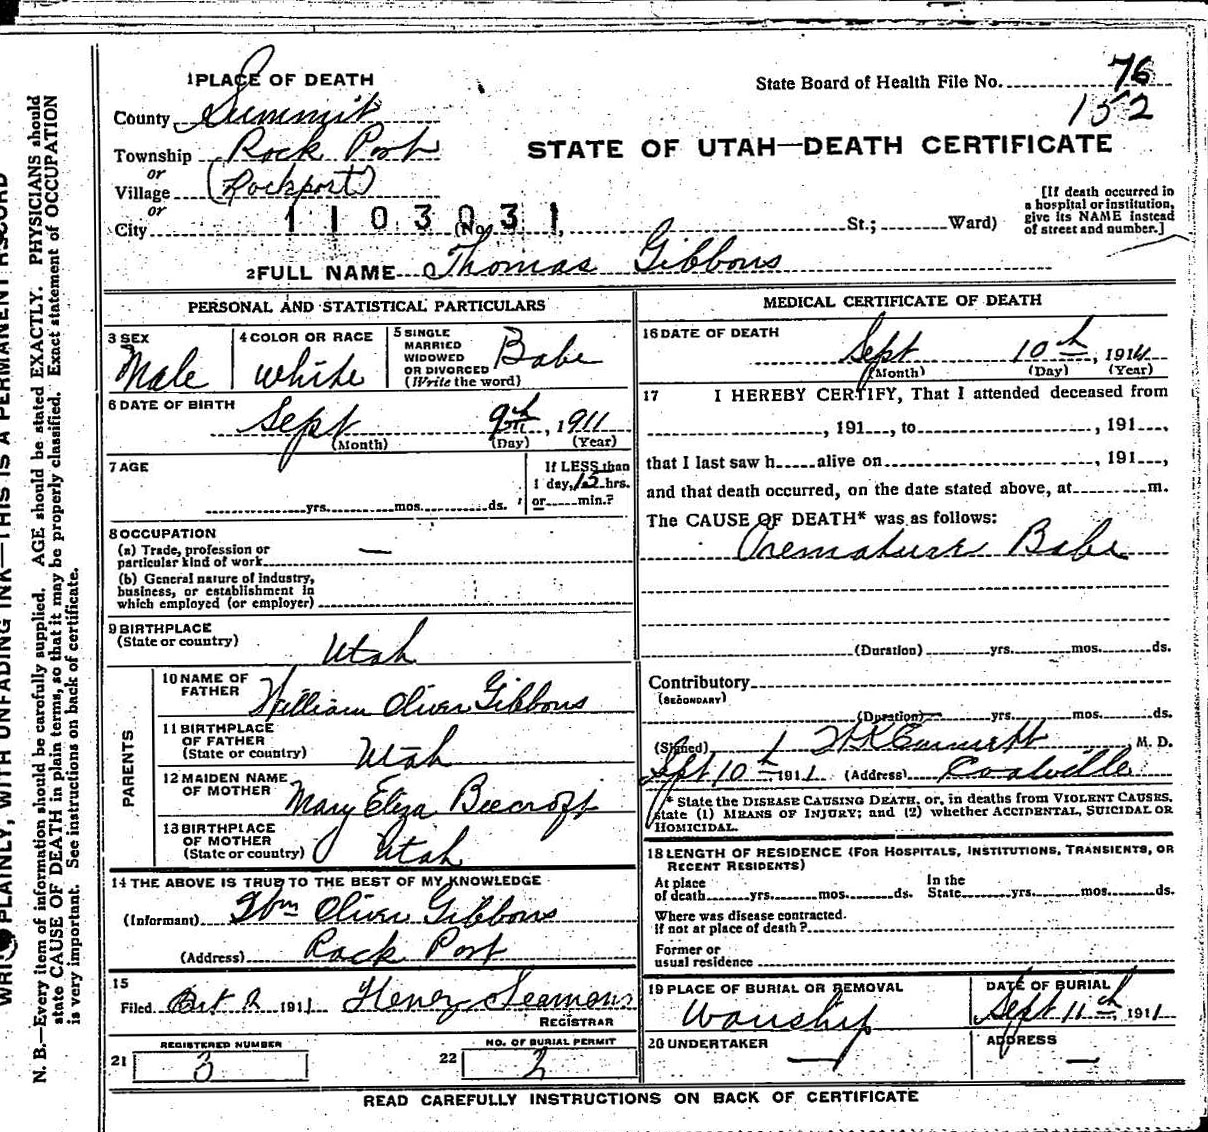 State Board of Health File No. 76
152
1 PLACE OF DEATH
County Summit
STATE OF UTAH—DEATH CERTIFICATE
Township Rock Port
or
Village (Rockport)
or
City 1103031 (No. , St.; Ward)
[If death occurred in
a hospital or institution,
give its NAME instead
of street and number.]
2 FULL NAME Thomas Gibbons
PERSONAL AND STATISTICAL PARTICULARS
3 SEX
Male
4 COLOR OR RACE
White
5 SINGLE
MARRIED
WIDOWED
OR DIVORCED
(Write the word)
Babe
6 DATE OF BIRTH
Sept 9th, 1911
(Month) (Day) (Year)
7 AGE
yrs. mos. ds.
If LESS than
1 day, 12 hrs.
or min.?
8 OCCUPATION
(a) Trade, profession or
particular kind of work —
(b) General nature of industry,
business, or establishment in
which employed (or employer)
9 BIRTHPLACE
(State or country)
Utah
PARENTS
10 NAME OF
FATHER William Oliver Gibbons
11 BIRTHPLACE
OF FATHER
(State or country) Utah
12 MAIDEN NAME
OF MOTHER Mary Eliza Beecroft
13 BIRTHPLACE
OF MOTHER
(State or country) Utah
14 THE ABOVE IS TRUE TO THE BEST OF MY KNOWLEDGE
(Informant) Wm Oliver Gibbons
(Address) Rock Port
15
Filed Oct 2 1911 Henry Seamons
REGISTRAR
21 REGISTERED NUMBER
3
22 NO. OF BURIAL PERMIT
2
MEDICAL CERTIFICATE OF DEATH
16 DATE OF DEATH
Sept 10th, 1911
(Month) (Day) (Year)
17 I HEREBY CERTIFY, That I attended deceased from
, 191 , to , 191 ,
that I last saw h alive on , 191 ,
and that death occurred, on the date stated above, at m.
The CAUSE OF DEATH* was as follows:
Premature Babe
(Duration) yrs. mos. ds.
Contributory
(SECONDARY)
(Duration) yrs. mos. ds.
(Signed) M. D.
Sept 10th 1911 (Address) Coalville
* State the DISEASE CAUSING DEATH, or, in deaths from VIOLENT CAUSES,
state (1) MEANS OF INJURY; and (2) whether ACCIDENTAL, SUICIDAL OR
HOMICIDAL.
18 LENGTH OF RESIDENCE (FOR HOSPITALS, INSTITUTIONS, TRANSIENTS, OR
RECENT RESIDENTS)
At place
of death yrs. mos. ds.
In the
State yrs. mos. ds.
Where was disease contracted.
if not at place of death?
Former or
usual residence
19 PLACE OF BURIAL OR REMOVAL
Wanship
DATE OF BURIAL
Sept 11th, 1911
20 UNDERTAKER
—
ADDRESS
—
READ CAREFULLY INSTRUCTIONS ON BACK OF CERTIFICATE
PLAINLY, WITH UNFADING INK—THIS IS A PERMANENT RECORD
N. B.—Every item of information should be carefully supplied. AGE should be stated EXACTLY. PHYSICIANS should
state CAUSE OF DEATH in plain terms, so that it may be properly classified. Exact statement of OCCUPATION
is very important. See instructions on back of certificate.